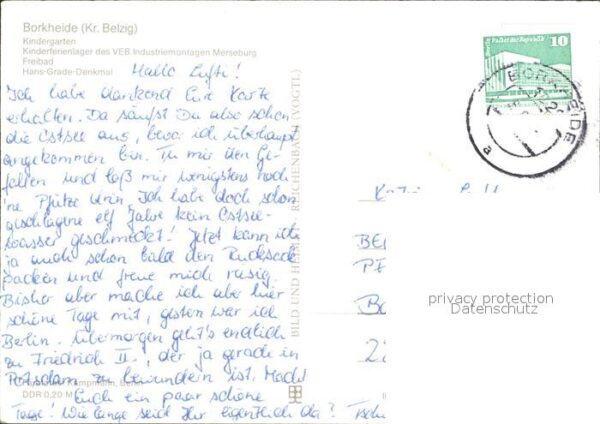 Borkheide (Kr. Belzig)
Kindergarten
Kinderferienlager des VEB Industriemontagen Merseburg
Freibad
Hans-Grade-Denkmal
Hallo Lufti!
Ich habe dankend Eure Karte
erhalten. Da säufst Du also schon
die Ostsee aus, bevor ich überhaupt
angekommen bin. Tu mir den Ge-
fallen und laß mir wenigstens noch
'ne Pfütze drin. Ich habe doch schon
geschlagene elf Jahre kein Ostsee-
wasser geschmeckt! Jetzt kann ich
ja auch schon bald den Rucksack
packen und freue mich riesig.
Bisher aber mache ich aber hier
schöne Tage mit, gestern war ich
Berlin. Übermorgen geht's endlich
zu Friedrich II., der ja gerade in
Potsdam zu bewundern ist. Macht
Euch ein paar schöne
Tage! Wie lange seid Ihr eigentlich da? Tschü
Kempmann, Berlin
DDR 0,20 M
BILD UND HEIM REICHENBACH (VOGTL)
Berlin Palast der Republik
10
DDR
BORKHEIDE
a
BE
privacy protection
Datenschutz